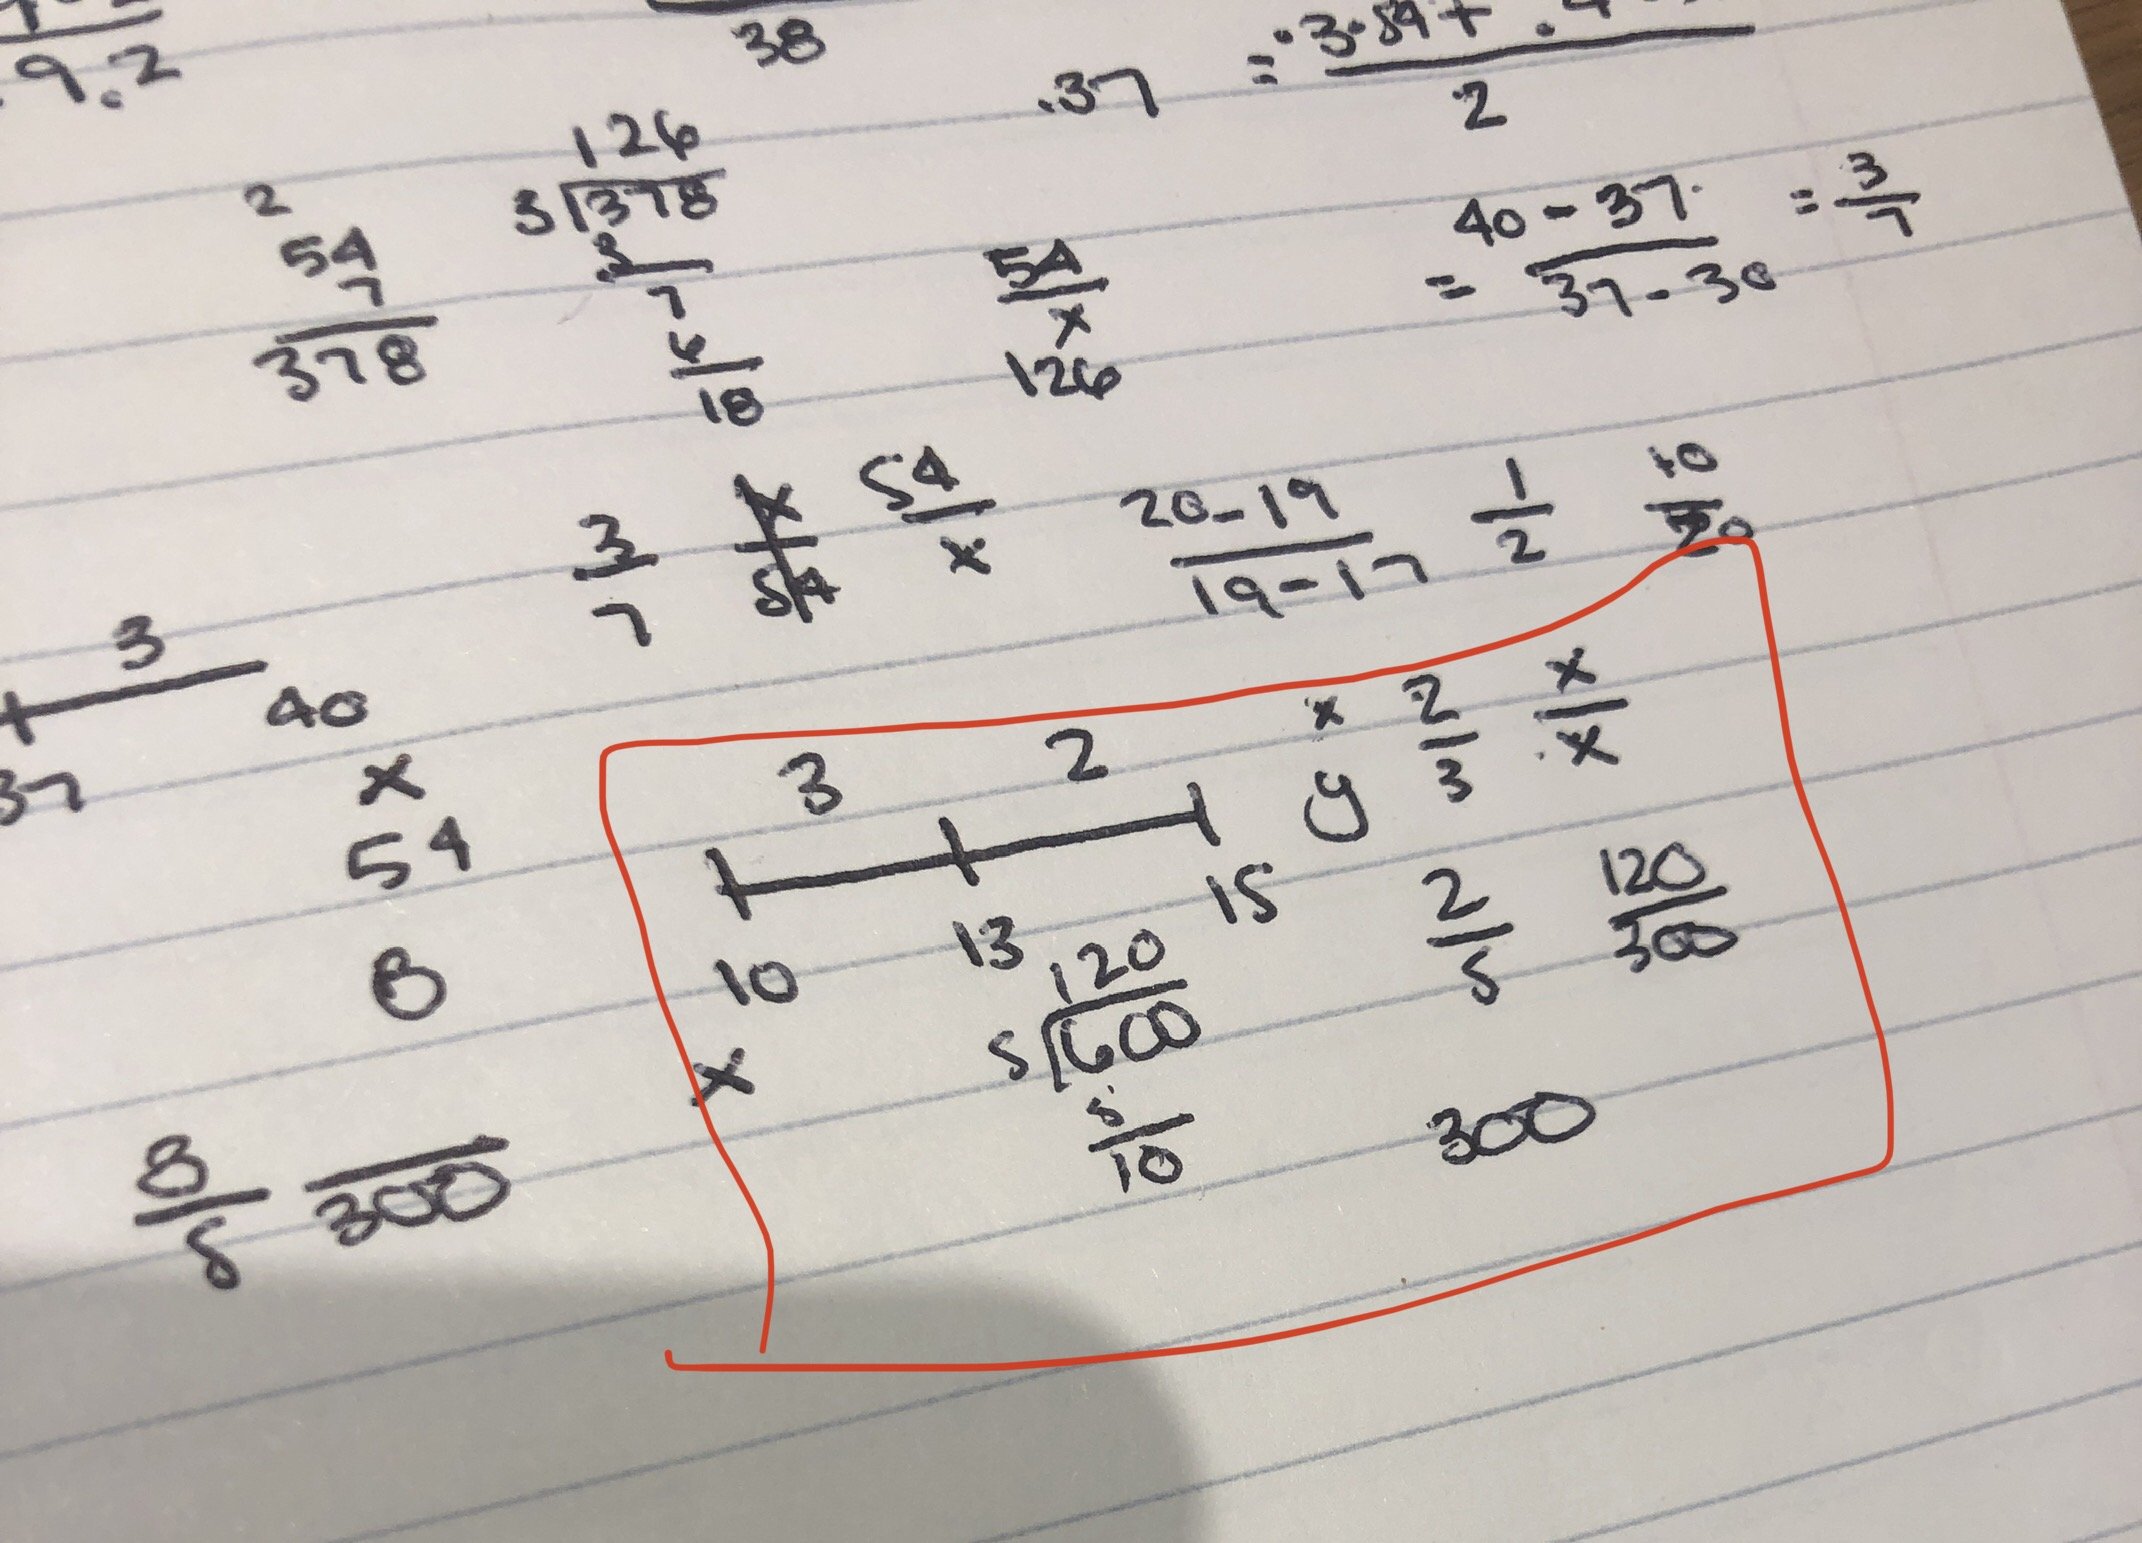 38
9.2
.37
2
126
2
3 378
54
7
378
3
7
6
18
54
x
126
40 - 37
37 - 30
= 3
7
=
3
7
54
x
20 - 19
19 - 17
1
2
10
20
3
40
37
x
54
8
8
5
300
3 2
10 13 15
x
y
2
3
x
x
2
5
120
300
x
120
5 600
5
10
300